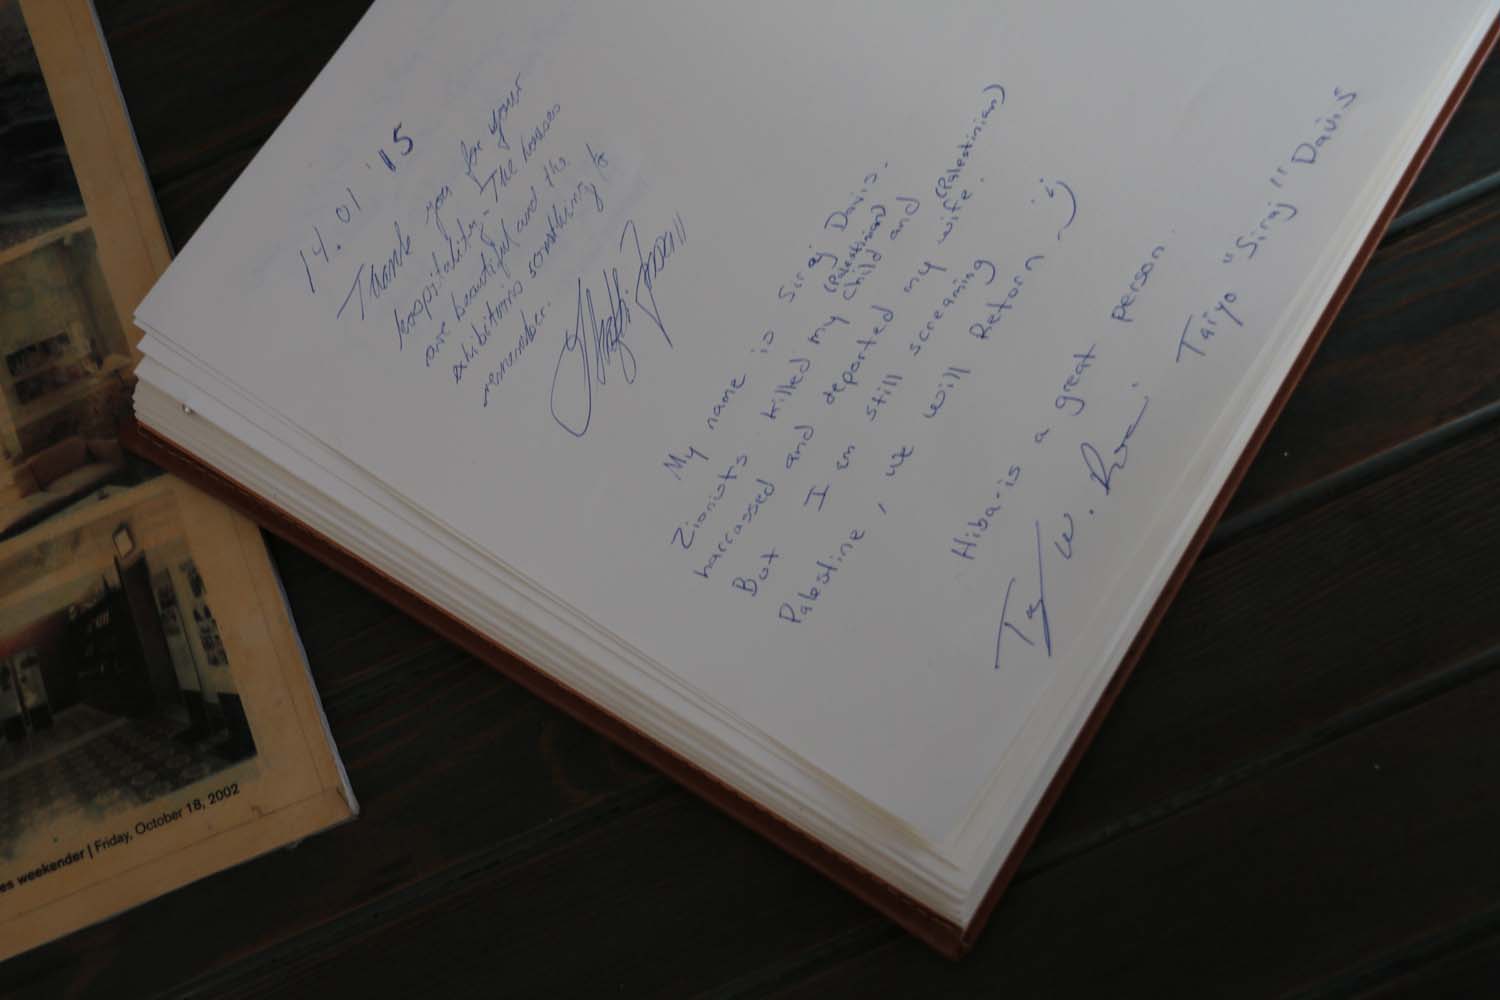 14.01 '15
Thank you for your
hospitality. The houses
are beautiful and the
exhibitions something to
remember.
My name is Siraj Davis.
Zionists killed my (Palestinian) child and
harcassed and deported my wife. (Palestinian)
But I am still screaming
Palestine, we will Return :)
Hiba is a great person.
Taiyo "Siraj" Davis
es weekender | Friday, October 18, 2002